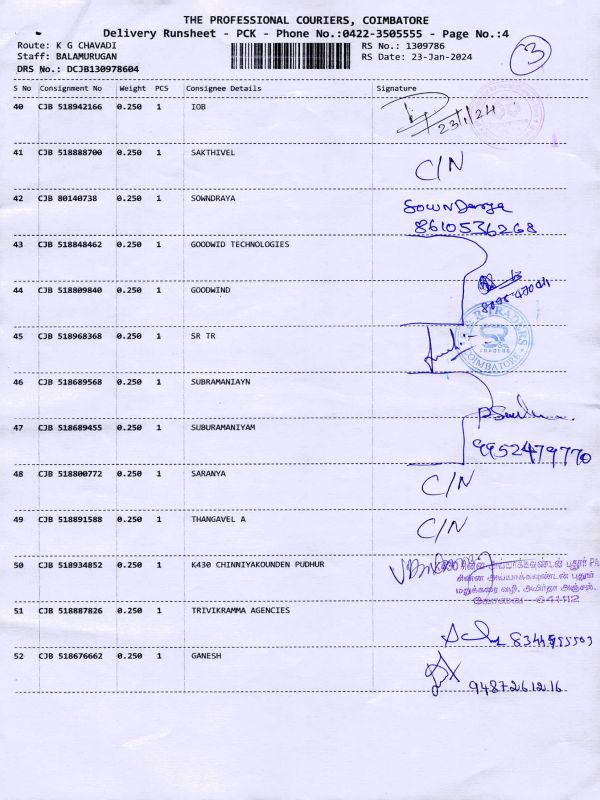 THE PROFESSIONAL COURIERS, COIMBATORE
Delivery Runsheet - PCK - Phone No.:0422-3505555 - Page No.:4
Route: K G CHAVADI RS No.: 1309786
Staff: BALAMURUGAN RS Date: 23-Jan-2024
DRS No.: DCJB130978604
3
S No Consignment No Weight PCS Consignee Details Signature
40 CJB 518942166 0.250 1 IOB 23/1/24
41 CJB 518888700 0.250 1 SAKTHIVEL C/N
42 CJB 80140738 0.250 1 SOWNDRAYA SOWNDarya
8610536268
43 CJB 518848462 0.250 1 GOODWID TECHNOLOGIES
44 CJB 518809840 0.250 1 GOODWIND
45 CJB 518968368 0.250 1 SR TR S.R. TRADERS
TRADERS
COIMBATORE
46 CJB 518689568 0.250 1 SUBRAMANIAYN
47 CJB 518689455 0.250 1 SUBURAMANIYAM 9952479770
48 CJB 518800772 0.250 1 SARANYA C/N
49 CJB 518891588 0.250 1 THANGAVEL A C/N
50 CJB 518934852 0.250 1 K430 CHINNIYAKOUNDEN PUDHUR
சின்ன அய்யாக்கவுண்டன் புதூர்
மதுக்கரை வழி, அமிர்தா அஞ்சல்,
கோவை - 641112
51 CJB 518887826 0.250 1 TRIVIKRAMMA AGENCIES
52 CJB 518676662 0.250 1 GANESH 9487261216